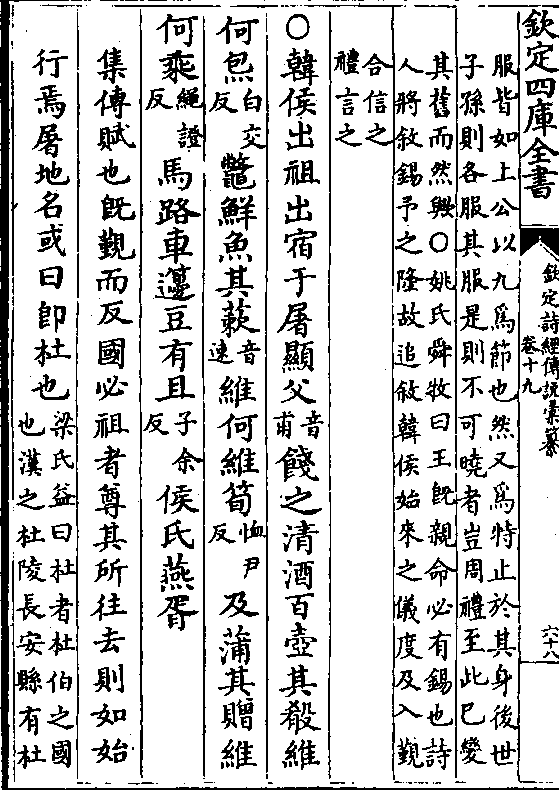 欽定四庫全書
欽定詩經傳說彙纂
卷十九
六十八
服皆如上公以九為節也然又為特止於其身後世
子孫則各服其服是則不可曉者豈周禮至此已變
其舊而然與○姚氏舜牧曰王既親命必有錫也詩
人將敘錫予之隆故追敘韓侯始來之儀度及入覲
合信之
禮言之
○韓侯出祖出宿于屠顯父音甫餞之清酒百壺其殽維
何炰白交反鼈鮮魚其蔌音速維何維筍恤尹反及蒲其贈維
何乘繩證反馬路車籩豆有且子余反侯氏燕胥
集傳賦也既覲而反國必祖者尊其所往去則如始
行焉屠地名或曰即杜也梁氏益曰杜者杜伯之國
也漢之杜陵長安縣有杜